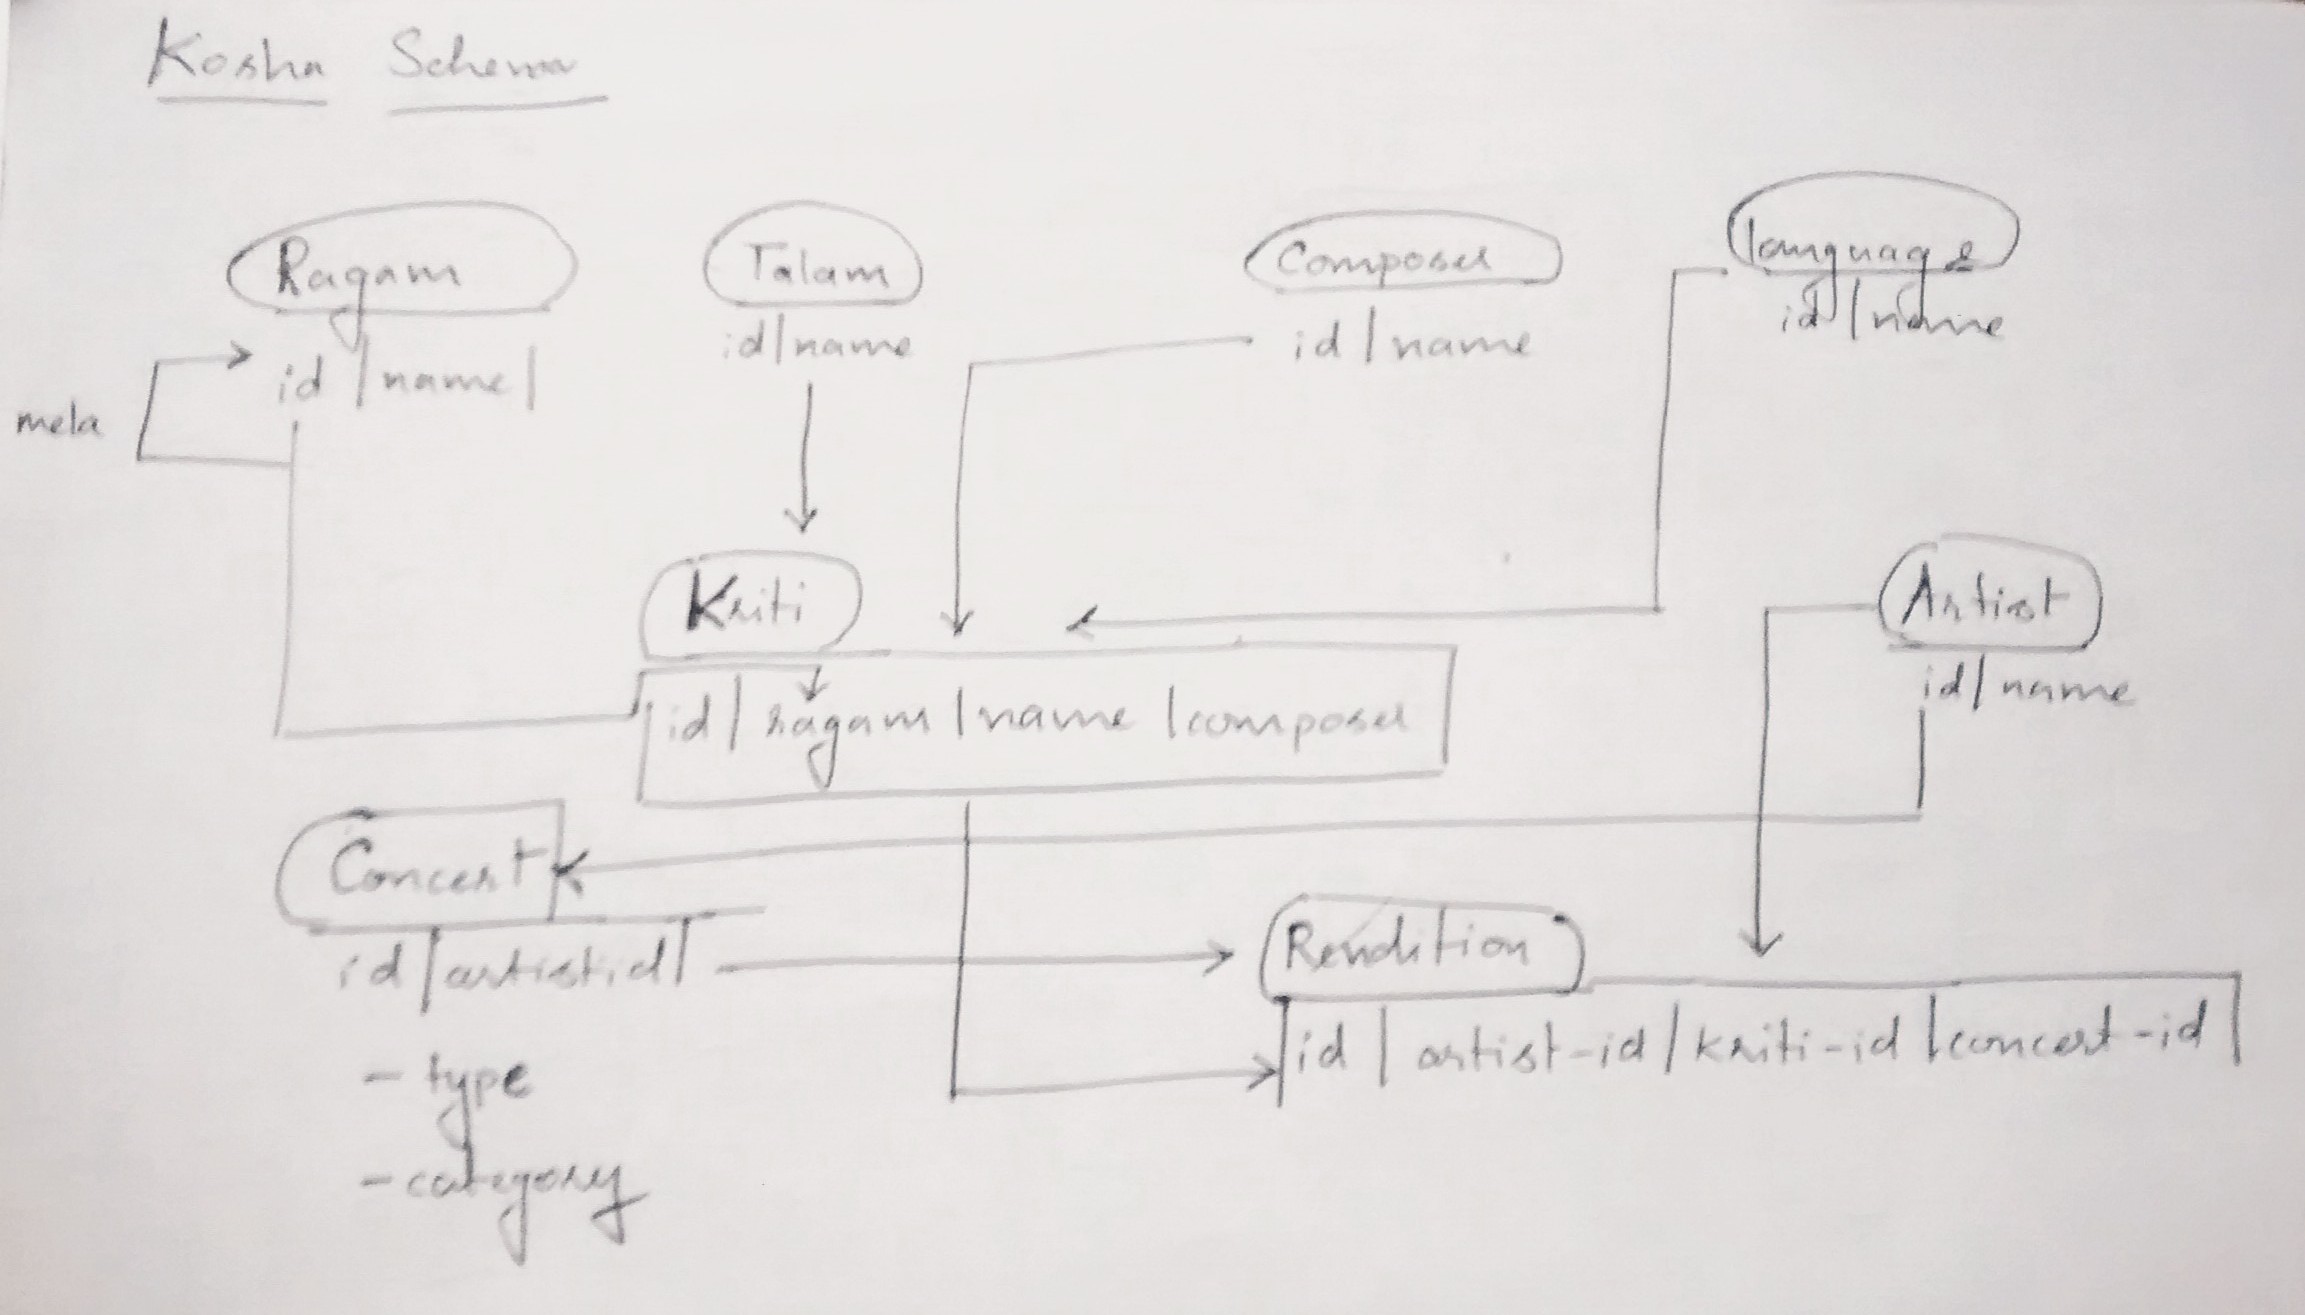 Kosha Schema
Ragam
id | name |
mela
Talam
id | name
Composer
id | name
language
id | name
Kriti
id | ragam | name | composer
Artist
id | name
Concert
id | artist.id |
- type
- category
Rendition
id | artist-id | kriti-id | concert-id |